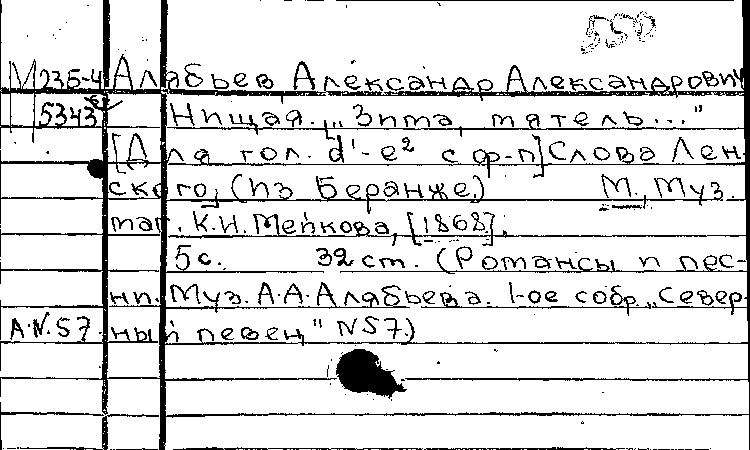 550
М 235-4 Алябьев Александр Александрович
5343 Нищая. „Зима, мятель..."
[Для гол. d'-e² с ф-п] Слова Лен-
ского, (из Беранже.) М., Муз.
маг. К.И. Мейкова, [1868].
5 с. 32 см. (Романсы и пес-
ни. Муз. А.А. Алябьева. 1-ое собр. „Север-
А.N.57. ный певец" N57)